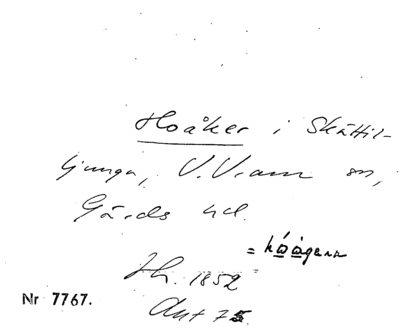 Hoåker i Skättil-
ljunga, V. Vram sn,
Gärds hd.
= håågann
Jh. 1852
Nr 7767.
Akt 75